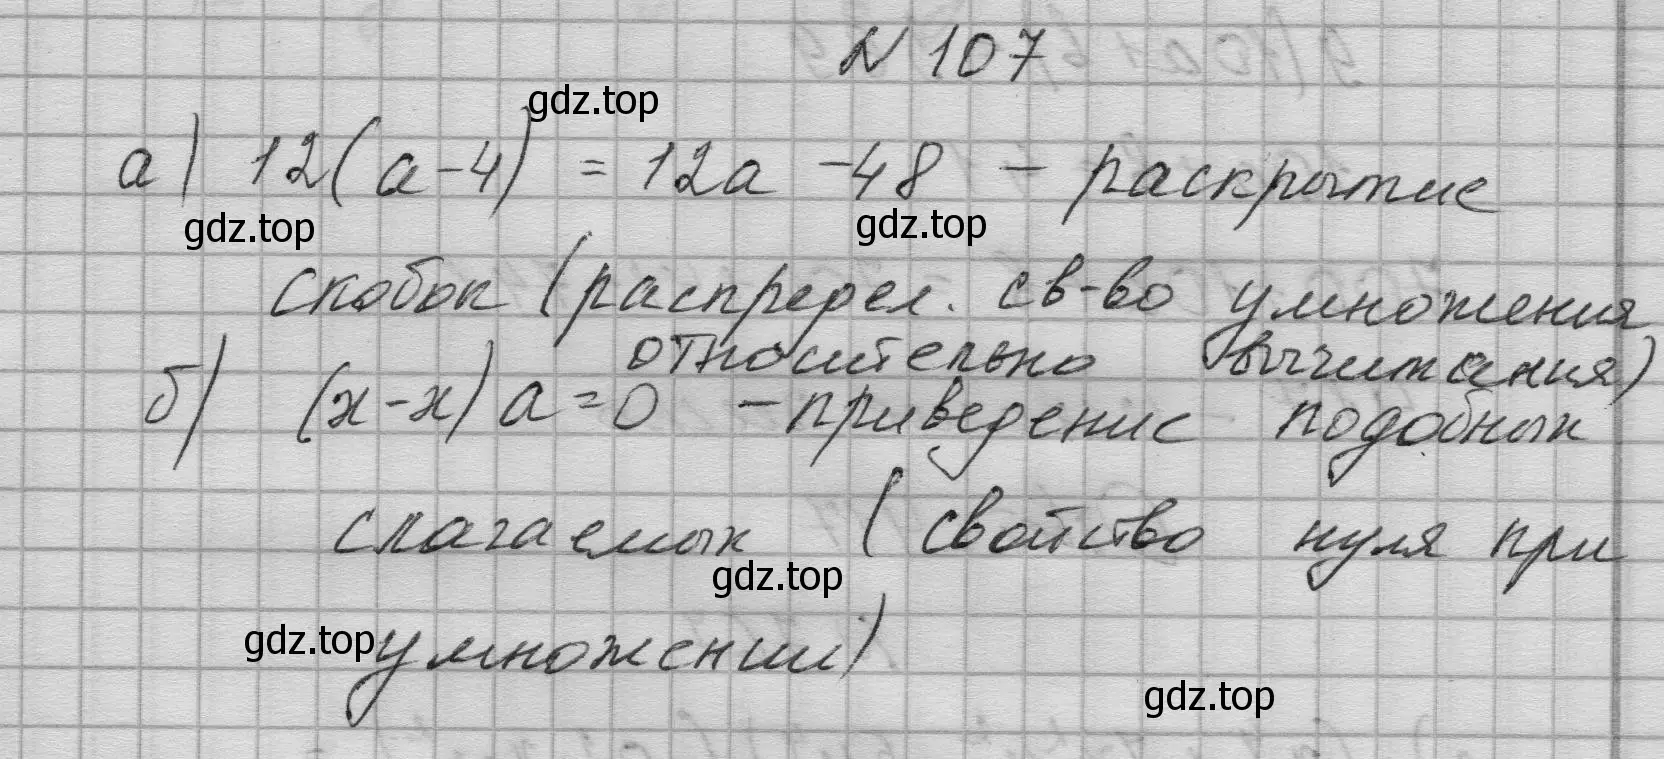 №107
gdz.top
а) 12(a-4) = 12a -48 - раскрытие
gdz.top
gdz.top
скобок (распредел. св-во умножения
относительно вычитания)
б) (x-x) a=0 - приведение подобных
слагаемых (свойство нуля при
gdz.top
gdz.top
умножении)
gdz.top